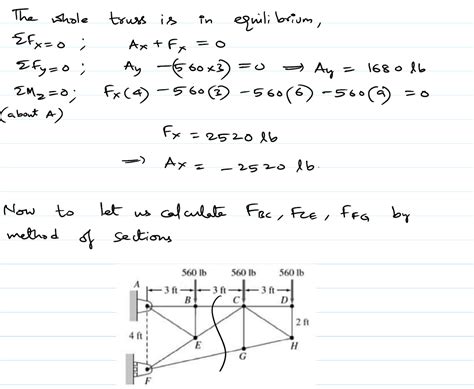 The whole truss is in equilibrium,
ΣFx=0 ; Ax + Fx = 0
ΣFy=0 ; Ay - (560×3) = 0 ⟹ Ay = 1680 lb
ΣMz=0; Fx(4) - 560(3) - 560(6) - 560(9) = 0
(about A)
Fx = 2520 lb
⟹ Ax = -2520 lb.
Now to let us calculate FBC, FCE, FFG by
method of sections
560 lb 560 lb 560 lb
A 3 ft 3 ft 3 ft
B C D
4 ft 2 ft
E H
G
F